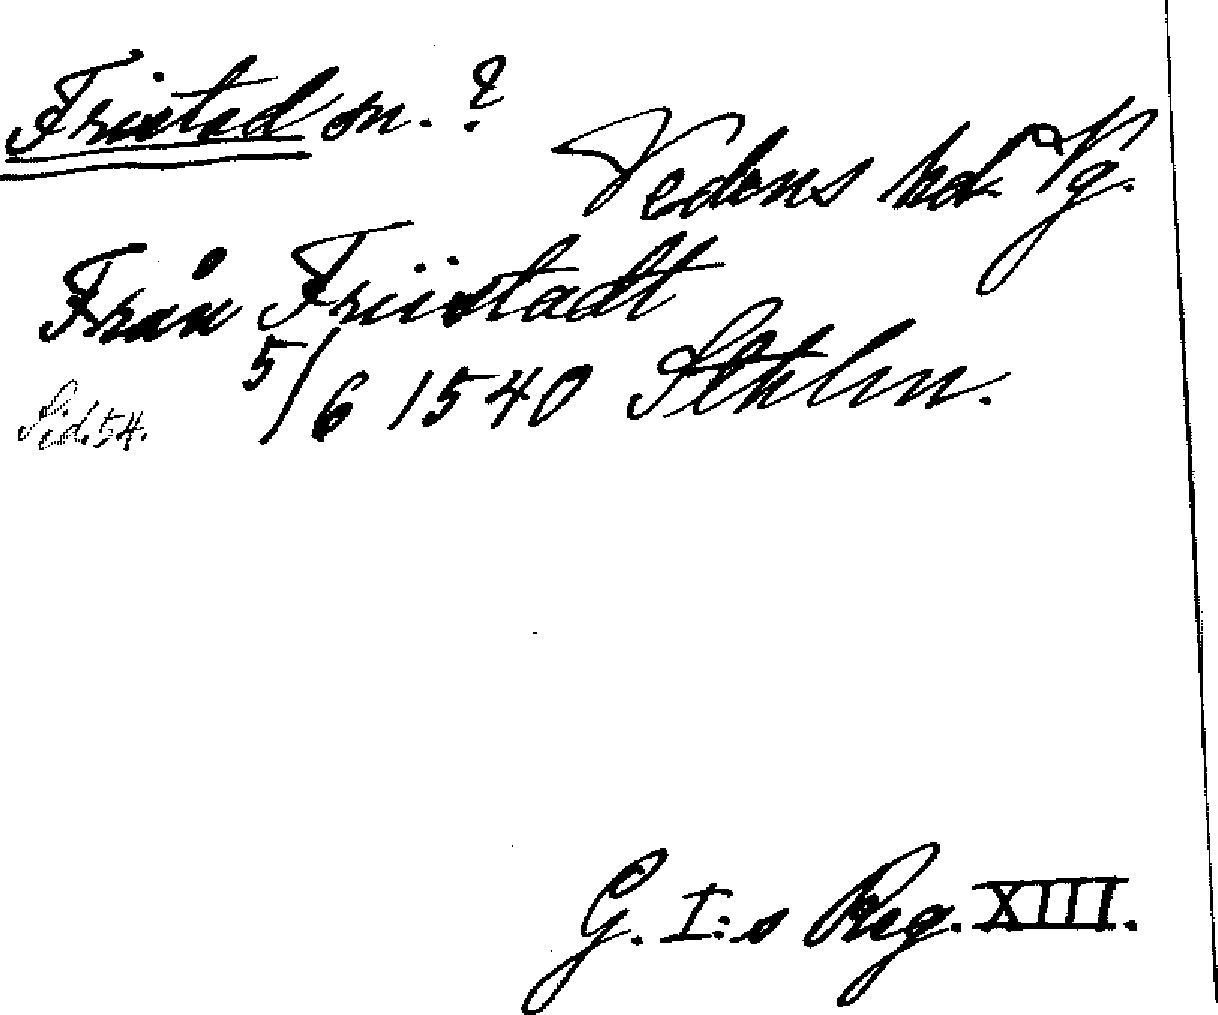 Fristad sn. ?
Vedens hd. Vg.
Från Friistadt
5/6 1540 Sthlm.
Sid. 54.
G. I:s Reg. XIII.